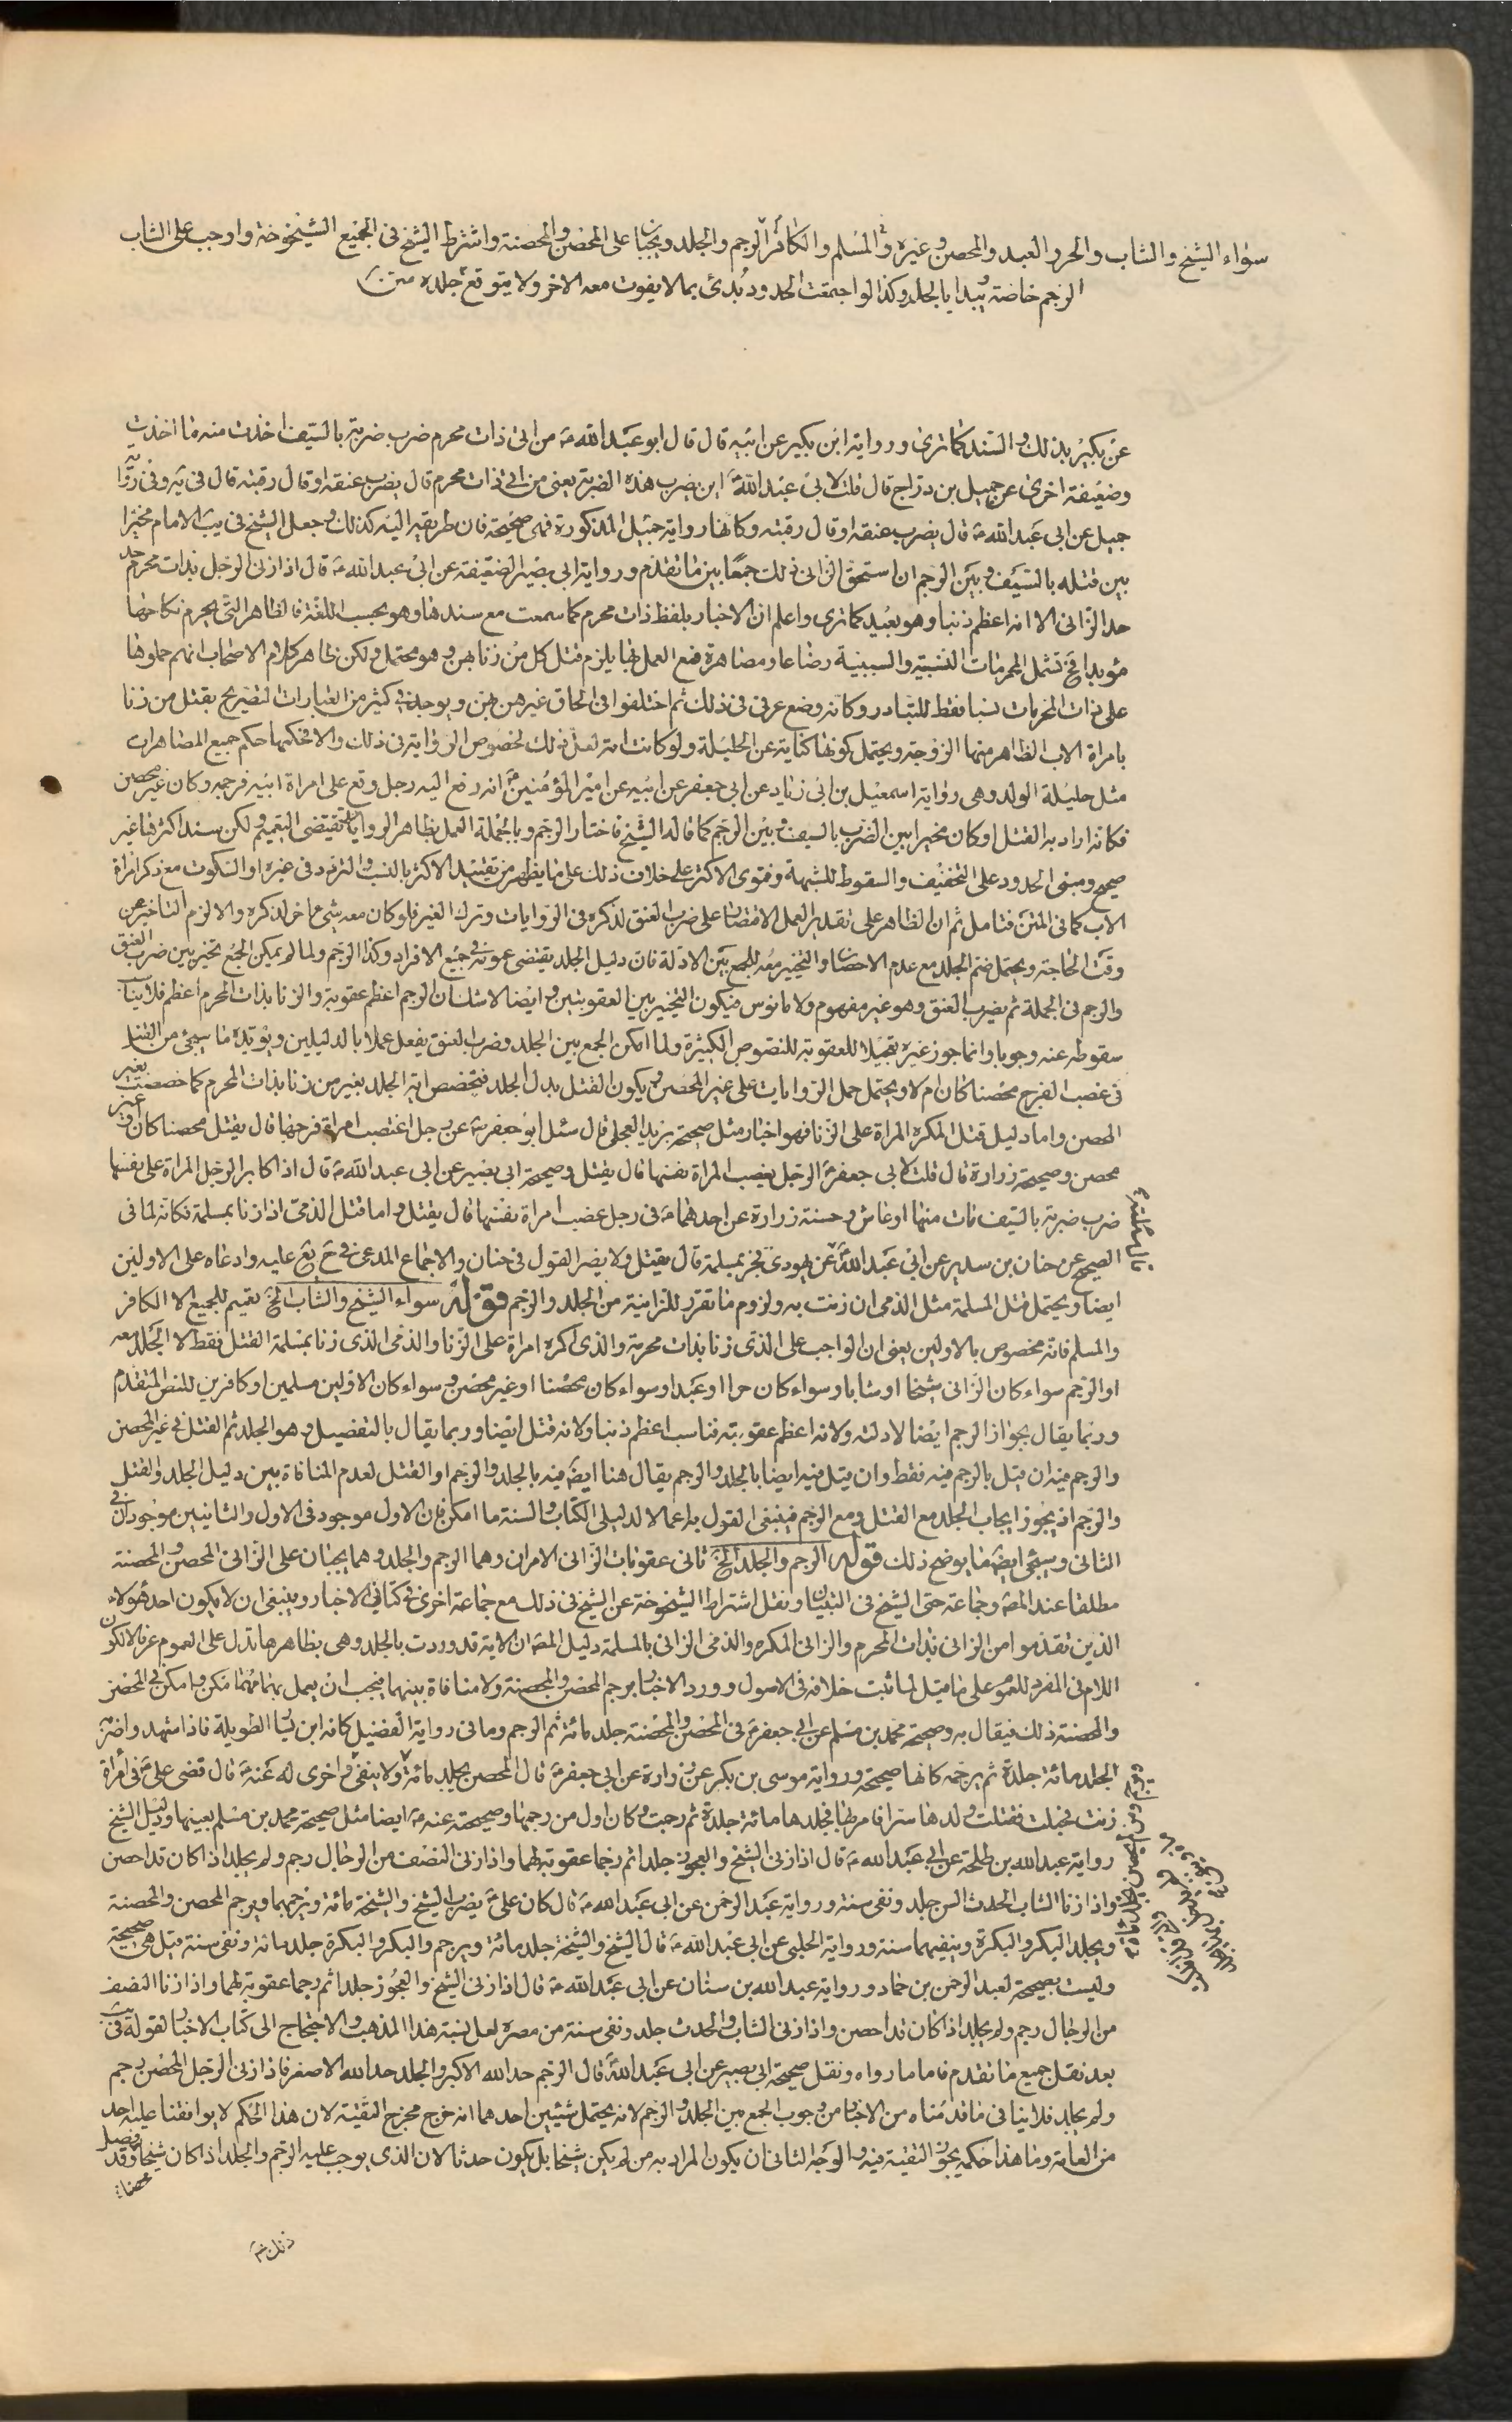 سواء الشيخ والشاب والحر والعبد والمحصن وغيره والمسلم والكافر الرجم والجلد ويجبان على المحصن والمحصنة واشترط الشيخ في الجميع الشيخوخة واوجب على الشاب
الرجم خاصة ويبدا بالجلد وكذا لو اجتمعت الحدود بدئ بما لا يفوت معه الاخر ولا يتوقع جلده
عن بكير بذلك والسند كما ترى ورواية ابن بكير عن ابيه قال قال ابو عبد الله من اتى ذات محرم ضرب ضربة بالسيف اخذت منه ما اخذت
وضعيفة اخرى عن جميل بن دراج قال قلت لابي عبد الله اين يضرب هذه الضربة يعني من اتى ذات محرم قال يضرب عنقه او قال رقبته قال في يه وفي رواية
جميل عن ابي عبد الله قال يضرب عنقه او قال رقبته وكانها رواية جميل المذكورة فهي صحيحة فان طريقه اليه كذلك وجعل الشيخ في يب الامام مخيرا
بين قتله بالسيف وبين الرجم ان استحق الزاني ذلك جمعا بين ما تقدم ورواية ابي بصير الضعيفة عن ابي عبد الله قال اذا زنى الرجل بذات محرم حد
حد الزاني الا انه اعظم ذنبا وهو بعيد كما ترى واعلم ان الاخبار بلفظ ذات محرم كما سمعت مع سندها وهو بحسب اللغة فالظاهر التي يحرم نكاحها
مؤبدا فح تشمل المحرمات النسبية والسببية رضاعا ومصاهرة فمع العمل بها يلزم قتل كل من زنا بهن وهو محتمل ولكن ظاهر كلام الاصحاب انهم حملوها
على ذات المحرمات نسبا فقط للتبادر وكانه وضع عرفي في ذلك ثم اختلفوا في الحاق غيرهن بهن ويوجد في كثير من العبارات التصريح بقتل من زنا
بامراة الاب الظاهر منها الزوجة ويحتمل كونها كناية عن الحليلة ولو كانت امة لعل ذلك لخصوص الرواية في ذلك والا فحكمها حكم جميع المصاهرات
مثل حليلة الولد وهي رواية اسمعيل بن ابي زياد عن ابي جعفر عن ابيه عن امير المؤمنين انه رفع اليه رجل وقع على امراة ابيه فرجمه وكان غير محصن
فكانه اراد به القتل او كان مخيرا بين الضرب بالسيف وبين الرجم كما قاله الشيخ فاختار الرجم وبالجملة العمل بظاهر الروايات يقتضي التعميم ولكن سند اكثرها غير
صحيح ومبنى الحدود على التخفيف والسقوط للشبهة وفتوى الاكثر على خلاف ذلك على ما يظهر من تقييد الاكثر بالنسب والتردد في غيره او السكوت مع ذكر امراة
الاب كما في المتن فتامل ثم ان الظاهر على تقدير العمل الاقتصار على ضرب العنق لذكره في الروايات وترك الغير فلو كان معه شيء اخر لذكره والا لزم التاخير عن
وقت الحاجة ويحتمل ضم الجلد مع عدم الاحصان والتخيير معه للجمع بين الادلة فان دليل الجلد يقتضي عمومه في جميع الافراد وكذا الرجم ولما لم يمكن الجمع تخير بين ضرب العنق
والرجم في الجملة ثم يضرب العنق وهو غير مفهوم ولا مانوس فيكون التخيير بين العقوبتين وايضا لا شك ان الرجم اعظم عقوبة والزنا بذات المحرم اعظم فلا يناسب
سقوطه عنه وجوبا وانما جوز غيره تعجيلا للعقوبة للنصوص الكثيرة ولما امكن الجمع بين الجلد وضرب العنق يفعل عملا بالدليلين ويؤيده ما سيجئ من القتل
في غصب الفرج محصنا كان ام لا ويحتمل حمل الروايات على غير المحصن ويكون القتل بدل الجلد فتخصص اية الجلد بغير من زنا بذات المحرم كما خصصت بغير
المحصن واما دليل قتل المكره المراة على الزنا فهو اخبار مثل صحيحة بريد العجلي قال سئل ابو جعفر عن رجل اغتصب امراة فرجها قال يقتل محصنا كان او غير
محصن وصحيحة زرارة قال قلت لابي جعفر الرجل يغصب المراة نفسها قال يقتل وصحيحة ابي بصير عن ابي عبد الله قال اذا كابر الرجل المراة على نفسها
ضرب ضربة بالسيف مات منها او عاش وحسنة زرارة عن احدهما في رجل غصب امراة نفسها قال يقتل واما قتل الذمي اذا زنا بمسلمة فكانه لما في
الصحيح عن حنان بن سدير عن ابي عبد الله عن يهودي فجر بمسلمة قال يقتل ولا يضر القول في حنان والاجماع المدعى في ح يع عليه وادعاه على الاولين
ايضا ويحتمل قتل المسلمة مثل الذمي ان زنت به ولزوم ما تقرر للزانية من الجلد والرجم قوله سواء الشيخ والشاب الخ تعميم للجميع الا الكافر
والمسلم فانه مخصوص بالاولين يعني ان الواجب على الذي زنا بذات محرمة والذي اكره امراة على الزنا والذمي الذي زنا بمسلمة القتل فقط لا الجلد معه
او الرجم سواء كان الزاني شيخا او شابا وسواء كان حرا او عبدا وسواء كان محصنا او غير محصن وسواء كان الاولين مسلمين او كافرين للنص المتقدم
وربما يقال بجواز الرجم ايضا لادلته ولانه اعظم عقوبة فناسب اعظم ذنبا ولانه قتل ايضا وربما يقال بالتفصيل وهو الجلد ثم القتل في غير المحصن
والرجم فيه ان قيل بالرجم فيه فقط وان قيل فيه ايضا بالجلد والرجم يقال هنا ايضا فيه بالجلد والرجم او القتل لعدم المنافاة بين دليل الجلد والقتل
والرجم اذ يجوز ايجاب الجلد مع القتل ومع الرجم فينبغي القول به اعمالا لدليلي الكتاب والسنة ما امكن فان الاول موجود في الاول والثانيين موجودان في
الثاني وسيجئ ايضا ما يوضح ذلك قوله الرجم والجلد الخ ثاني عقوبات الزاني الامران وهما الرجم والجلد وهما يجبان على الزاني المحصن والمحصنة
مطلقا عند المصـ وجماعة حتى الشيخ في التبيان ونقل اشتراط الشيخوخة عن الشيخ في ذلك مع جماعة اخرى في كتابي الاخبار وينبغي ان لا يكون احد هؤلاء
الذين تقدموا من الزاني بذات المحرم والزاني المكره والذمي الزاني بالمسلمة دليل المصـ ان الاية قد وردت بالجلد وهي بظاهرها تدل على العموم عرفا لكون
اللام في المفرد للعموم على ما قيل لما ثبت خلافه في الاصول وورد الاخبار برجم المحصن والمحصنة ولا منافاة بينهما فيجب ان يعمل بهما مهما امكن وامكن في المحصن
والمحصنة ذلك فيقال به وصحيحة محمد بن مسلم عن ابي جعفر في المحصن والمحصنة جلد مائة ثم الرجم وما في رواية الفضيل كانه ابن يسار الطويلة فاذا شهد واضربه
الجلد مائة جلدة ثم يرجمه كانها صحيحة ورواية موسى بن بكر عن زرارة عن ابي جعفر قال المحصن يجلد مائة ولا ينفى واخرى له عنه قال قضى علي في امراة
زنت فحبلت فقتلت ولدها سرا فامر بها فجلدها مائة جلدة ثم رجمت وكان اول من رجمها وصحيحته عنه ايضا مثل صحيحة محمد بن مسلم بعينها ودليل الشيخ
رواية عبد الله بن طلحة عن ابي عبد الله قال اذا زنى الشيخ والعجوز جلدا ثم رجما عقوبة لهما واذا زنى النصف من الرجال رجم ولم يجلد اذا كان قد احصن
واذا زنا الشاب الحدث السن جلد ونفى سنة ورواية عبد الرحمن عن ابي عبد الله قال كان علي يضرب الشيخ والشيخة مائة ويرجمهما ويرجم المحصن والمحصنة
ويجلد البكر والبكرة وينفيهما سنة ورواية الحلبي عن ابي عبد الله قال الشيخ والشيخة جلد مائة ويرجم والبكر والبكرة جلد مائة ونفى سنة قيل هي صحيحة
وليست بصحيحة لعبد الرحمن بن حماد ورواية عبد الله بن سنان عن ابي عبد الله قال اذا زنى الشيخ والعجوز جلدا ثم رجما عقوبة لهما واذا زنا النصف
من الرجال رجم ولم يجلد اذا كان قد احصن واذا زنى الشاب والحدث جلد ونفى سنة من مصره لعل نسبة هذا المذهب والاحتجاج الى كتاب الاخبار لقوله في يب
بعد نقل جميع ما تقدم فاما ما رواه ونقل صحيحة ابي بصير عن ابي عبد الله قال الرجم حد الله الاكبر والجلد حد الله الاصغر فاذا زنى الرجل المحصن رجم
ولم يجلد فلا ينافي ما قدمناه من الاخبار من وجوب الجمع بين الجلد والرجم لانه يحتمل شيئين احدهما انه خرج مخرج التقية لان هذا الحكم لا يوافقنا عليه احد
من العامة وما هذا حكمه يجوز التقية فيه والوجه الثاني ان يكون المراد به من لم يكن شيخا بل يكون حدثا لان الذي يوجب عليه الرجم والجلد اذا كان شيخا وقد فصل
محصنا